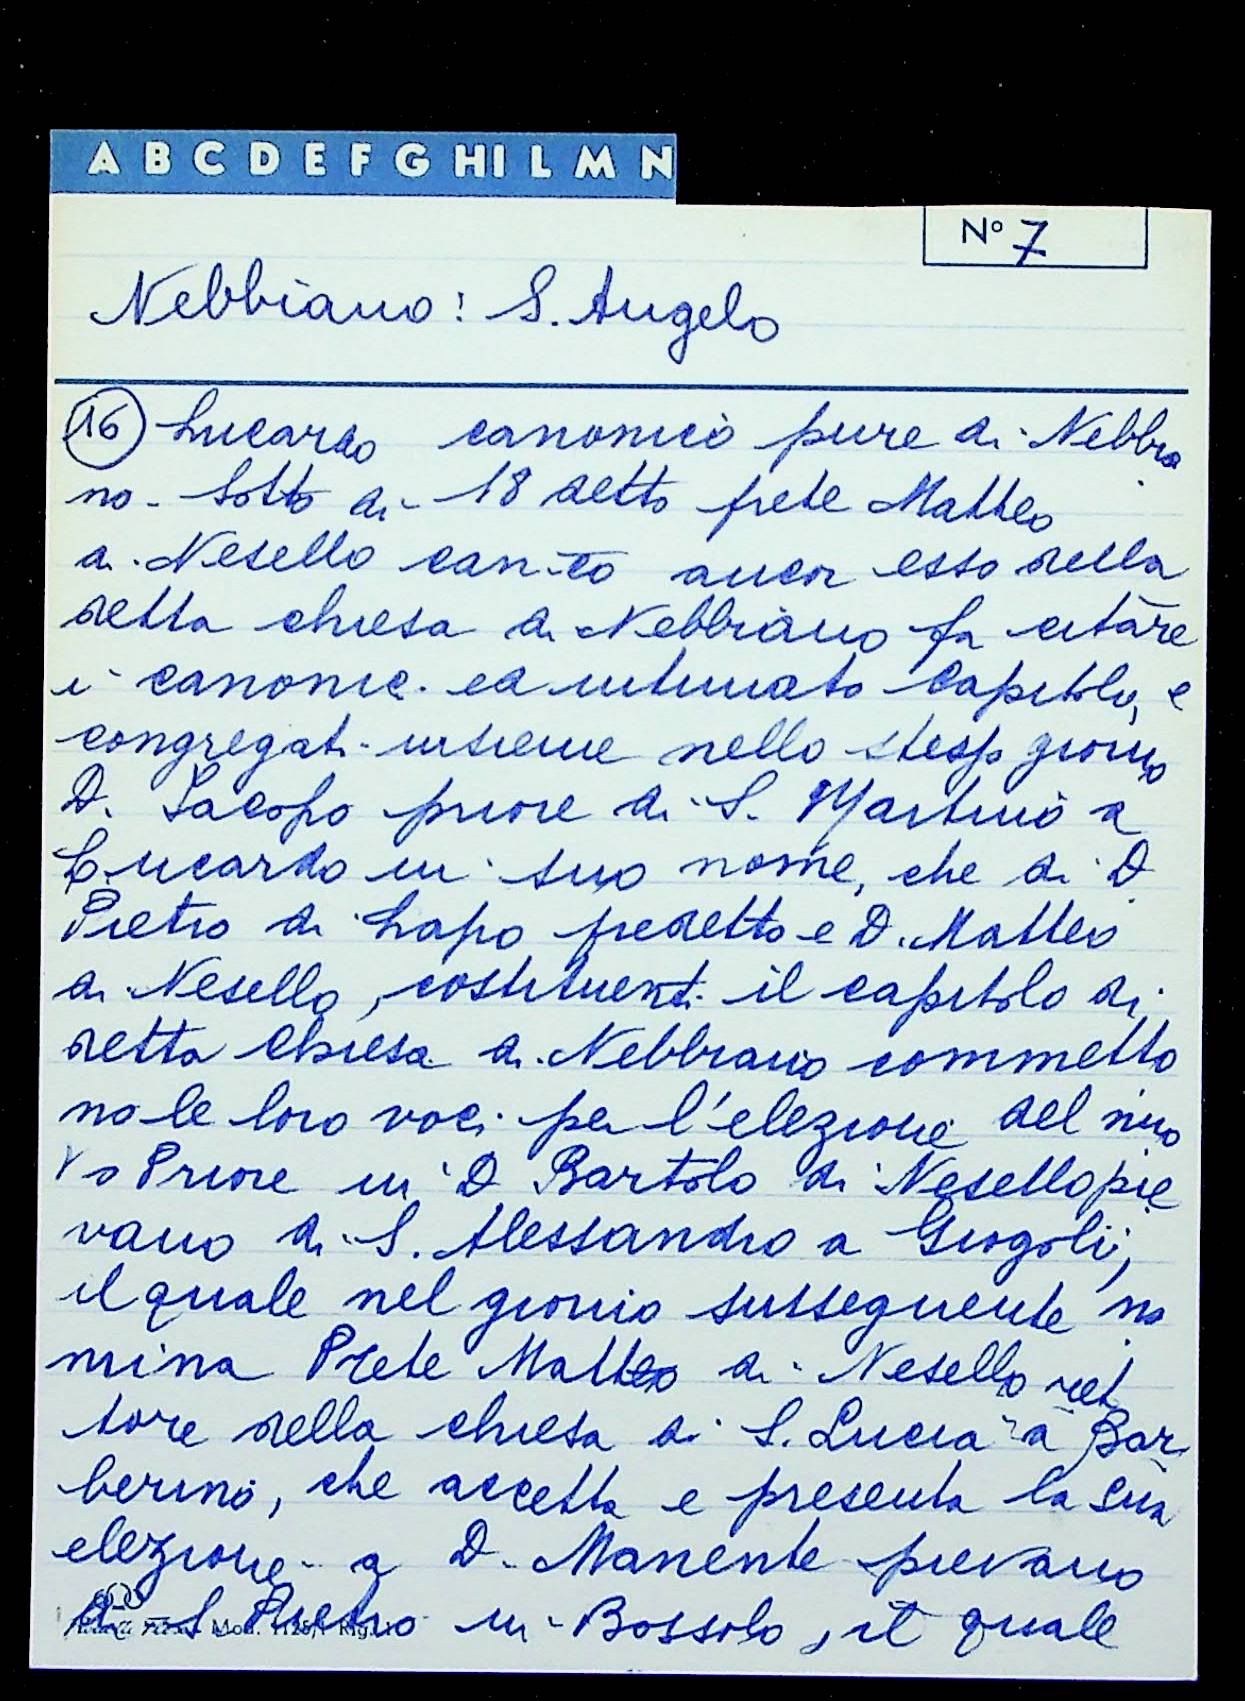 A B C D E F G HI L M N
N° 7
Nebbiano: S. Angelo
16 Lucardo canonico pure di Nebbia
no. Sotto di 18 detto prete Matteo
di Nesello can-co ancor esso della
detta chiesa di Nebbiano fa citare
i canonici ed intimato Capitolo, e
congregati insieme nello stesso giorno
D. Jacopo priore di S. Martino a
Lucardo in suo nome, che di D
Pietro di Lapo predetto e D. Matteo
di Nesello, costituenti il capitolo di
detta Chiesa di Nebbiano commetto
no le loro voci per l'elezione del nuo
vo Priore in D Bartolo di Nesello pie
vano di S. Alessandro a Giogoli,
il quale nel giorno susseguente no
mina Prete Matteo di Nesello ret
tore della chiesa di S. Lucia a Bar
berino, che accetta e presenta la sua
elezione a D. Manente pievano
di S. Pietro in Bossolo, il quale